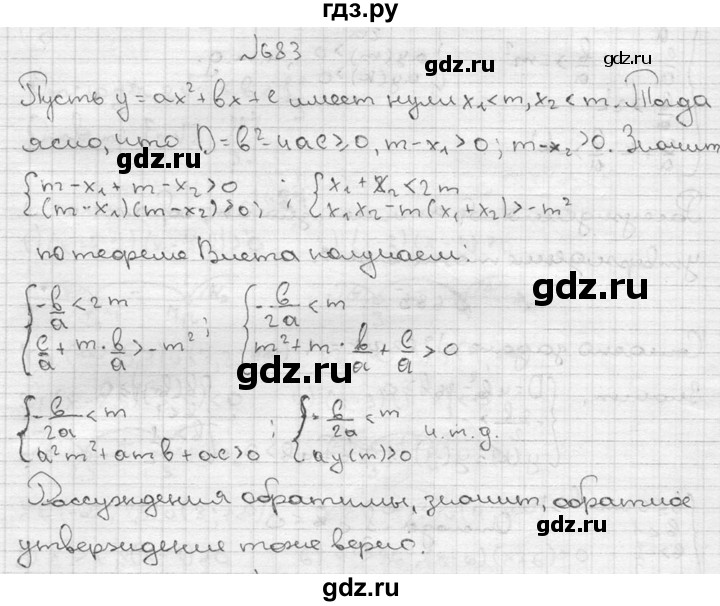 гдз.ру
№683
gdz.ru gdz.ru
Пусть y = ax² + bx + c имеет нули x₁ < m, x₂ < m. Тогда
ясно, что D = b² - 4ac ≥ 0, m - x₁ > 0; m - x₂ > 0. Значит
gdz.ru gdz.ru
{ m - x₁ + m - x₂ > 0 ; { x₁ + x₂ < 2m
{ (m - x₁)(m - x₂) > 0; { x₁x₂ - m(x₁ + x₂) > -m²
по теореме Виета получаем:
gdz.ru gdz.ru
{ -b/a < 2m ; { -b/2a < m
{ c/a + m · b/a > -m² { m² + m · b/a + c/a > 0
gdz.ru
{ -b/2a < m ; { -b/2a < m ч.т.д.
{ a²m² + amb + ac > 0 { ay(m) > 0
gdz.ru
Рассуждения обратимы, значит, обратное
gdz.ru
утверждение тоже верно.
gdz.ru
gdz.ru